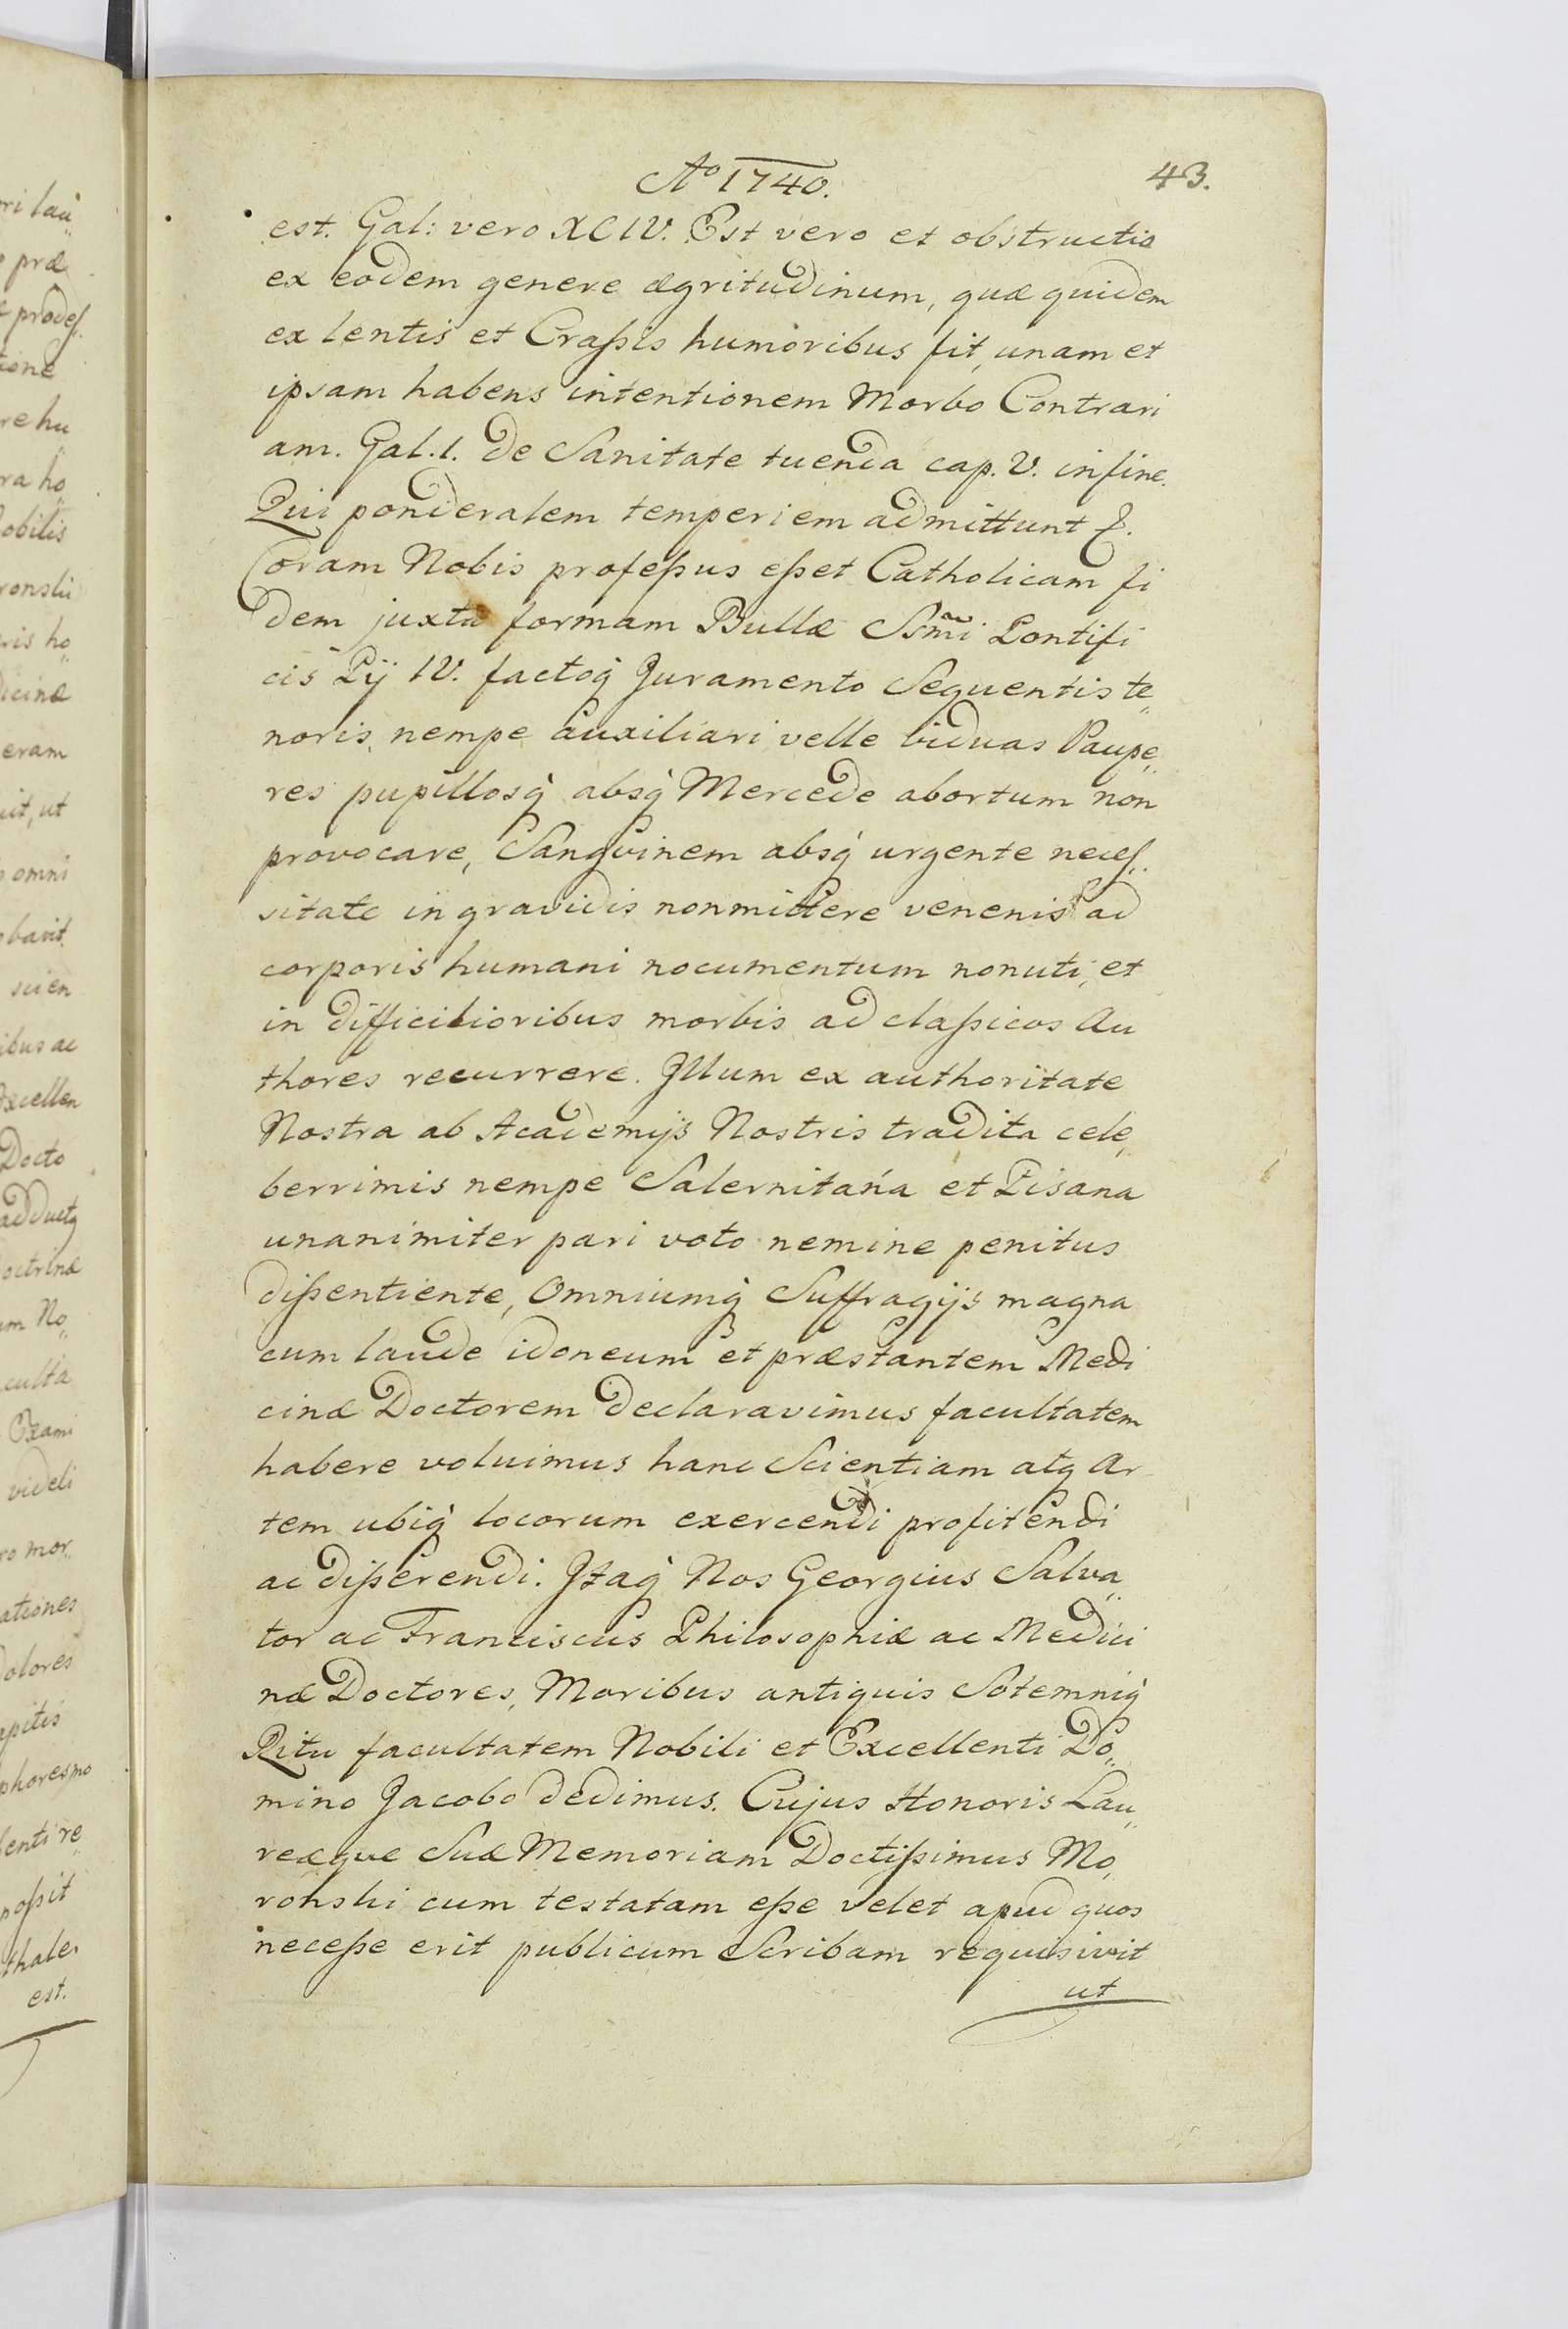 Ao 1740.
43.
est. Gal: vero XCIV. Est vero et obstructio
ex eodem genere ægritudinum, quæ quidem
ex lentis et Craßis humoribus fit, unam et
ipsam habens intentionem Morbo Contrari
am. Gal. 1. de Sanitate tuenda cap. V. infine.
Qui ponderalem temperiem admittunt &.
Coram Nobis profeßus eßet Catholicam fi
dem juxta formam Bullæ Ssmi Pontifi
cis Pij IV. factoq̀ Juramento Sequentis te„
noris, nempe auxiliari velle viduas Paupe„
res pupillosq̀ absq̀ Mercede abortum non
provocare, Sangvinem absq̀ urgente neces„
sitate in gravidis nonmittere venenis ad
corporis humani nocumentum nonuti, et
in difficilioribus morbis ad claßicos Au
thores recurrere. Illum ex authoritate
Nostra ab Academijs Nostris tradita cele„
berrimis nempe Salernitana et Pisana
unanimiter pari voto nemine penitus
dißentiente, Omniumq̀ Suffragijs magna
cum laude idoneum et præstantem Medi
cinæ Doctorem declaravimus facultatem
habere voluimus hanc Scientiam atq Ar
tem ubiq̀ locorum exercendi profitendi
ac dißerendi. Itaq̀ Nos Georgius Salva„
tor ac Franciscus Philosophiæ ac Medici
næ Doctores, Moribus antiquis Solemniq̀
Ritu facultatem Nobili et Excellenti Do„
mino Jacobo dedimus. Cujus Honoris Lau„
reæque Suæ Memoriam Doctißimus Mo„
ronski cum testatam eße velet apud quos
neceße erit publicum Scribam requisivit
ut